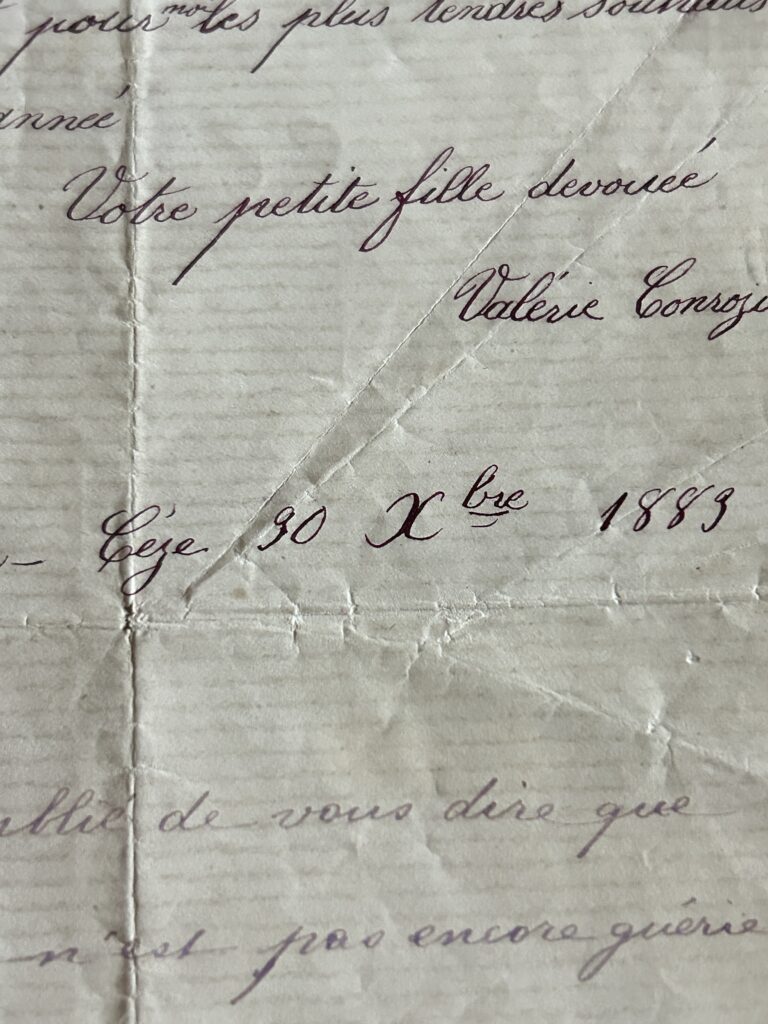 pour nous les plus tendres souhaits
année
Votre petite fille devouée
Valérie
Céze 30 Xbre 1883
de vous dire que
n'est pas encore guérie